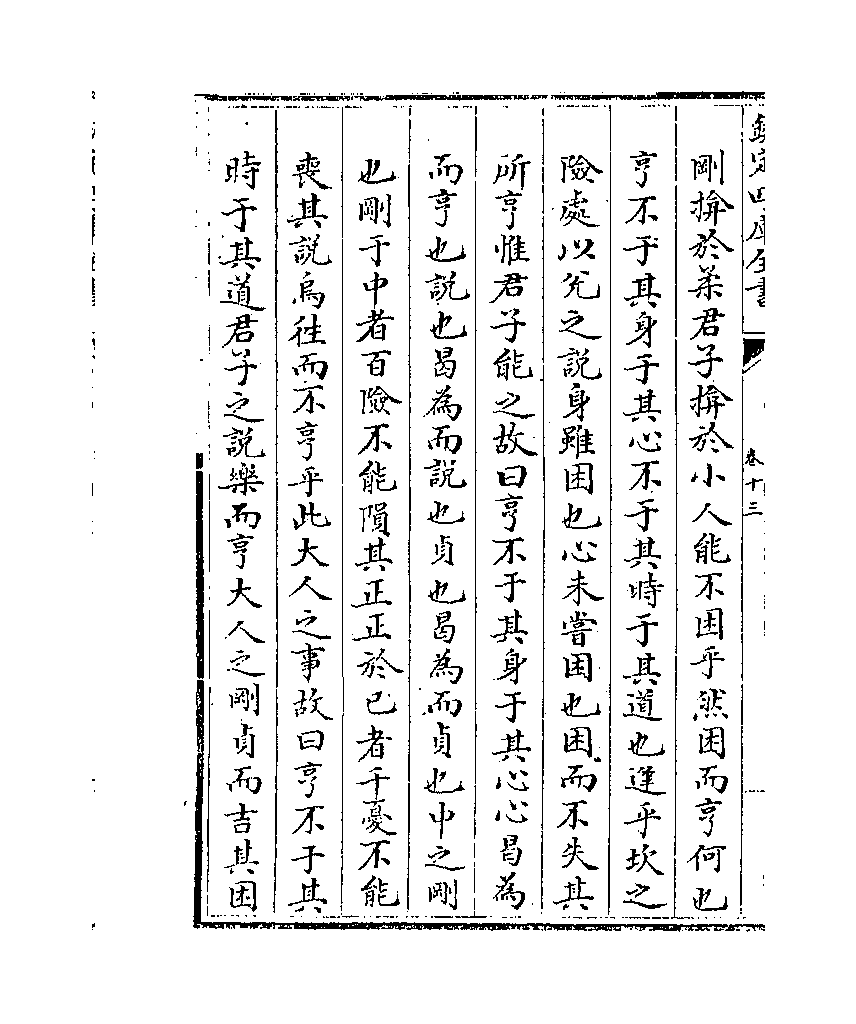 欽定四庫全書
卷十三
剛揜於柔君子揜於小人能不困乎然困而亨何也
亨不于其身于其心不于其時于其道也進乎坎之
險處以兊之説身雖困也心未嘗困也困而不失其
所亨惟君子能之故曰亨不于其身于其心心曷為
而亨也説也曷為而説也貞也曷為而貞也中之剛
也剛于中者百險不能隕其正正於已者千憂不能
喪其説烏往而不亨乎此大人之事故曰亨不于其
時于其道君子之説樂而亨大人之剛貞而吉其困